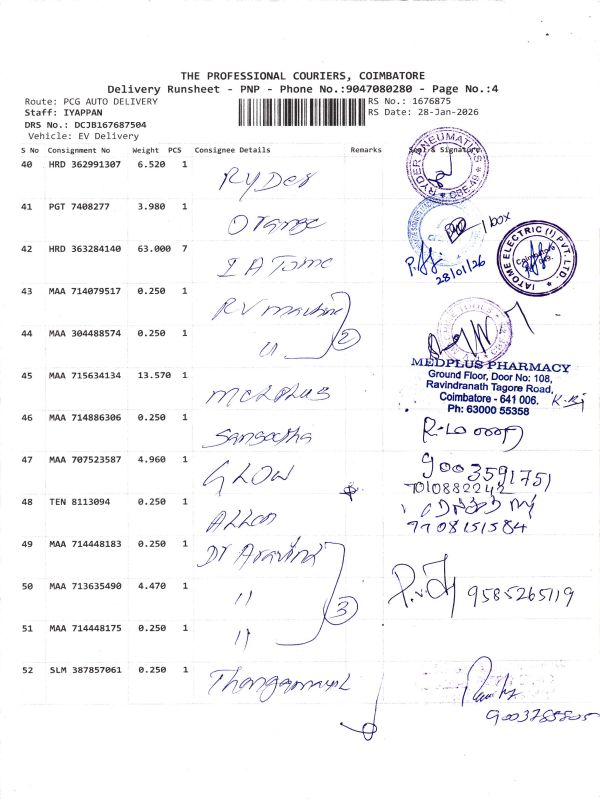 THE PROFESSIONAL COURIERS, COIMBATORE
Delivery Runsheet - PNP - Phone No.:9047080280 - Page No.:4
Route: PCG AUTO DELIVERY
Staff: IYAPPAN
DRS No.: DCJB167687504
Vehicle: EV Delivery
RS No.: 1676875
RS Date: 28-Jan-2026
S No Consignment No Weight PCS Consignee Details Remarks Seal & Signature
40 HRD 362991307 6.520 1 Ryder
RYDER PNEUMATICS
CBE-49
41 PGT 7408277 3.980 1 Orange
1 box
28/01/26
42 HRD 363284140 63.000 7 IATome
IATOME ELECTRIC (I) PVT. LTD.
Coimbatore
43 MAA 714079517 0.250 1 RV machine
44 MAA 304488574 0.250 1 "
2
45 MAA 715634134 13.570 1 Medplus
MEDPLUS PHARMACY
Ground Floor, Door No: 108,
Ravindranath Tagore Road,
Coimbatore - 641 006.
Ph: 63000 55358
46 MAA 714886306 0.250 1 Sangeetha
47 MAA 707523587 4.960 1 GLOW
9003591751
7010882242
48 TEN 8113094 0.250 1
7708151584
49 MAA 714448183 0.250 1 Dr Aravind
50 MAA 713635490 4.470 1 "
3
9585265119
51 MAA 714448175 0.250 1 "
52 SLM 387857061 0.250 1 Thangamayil